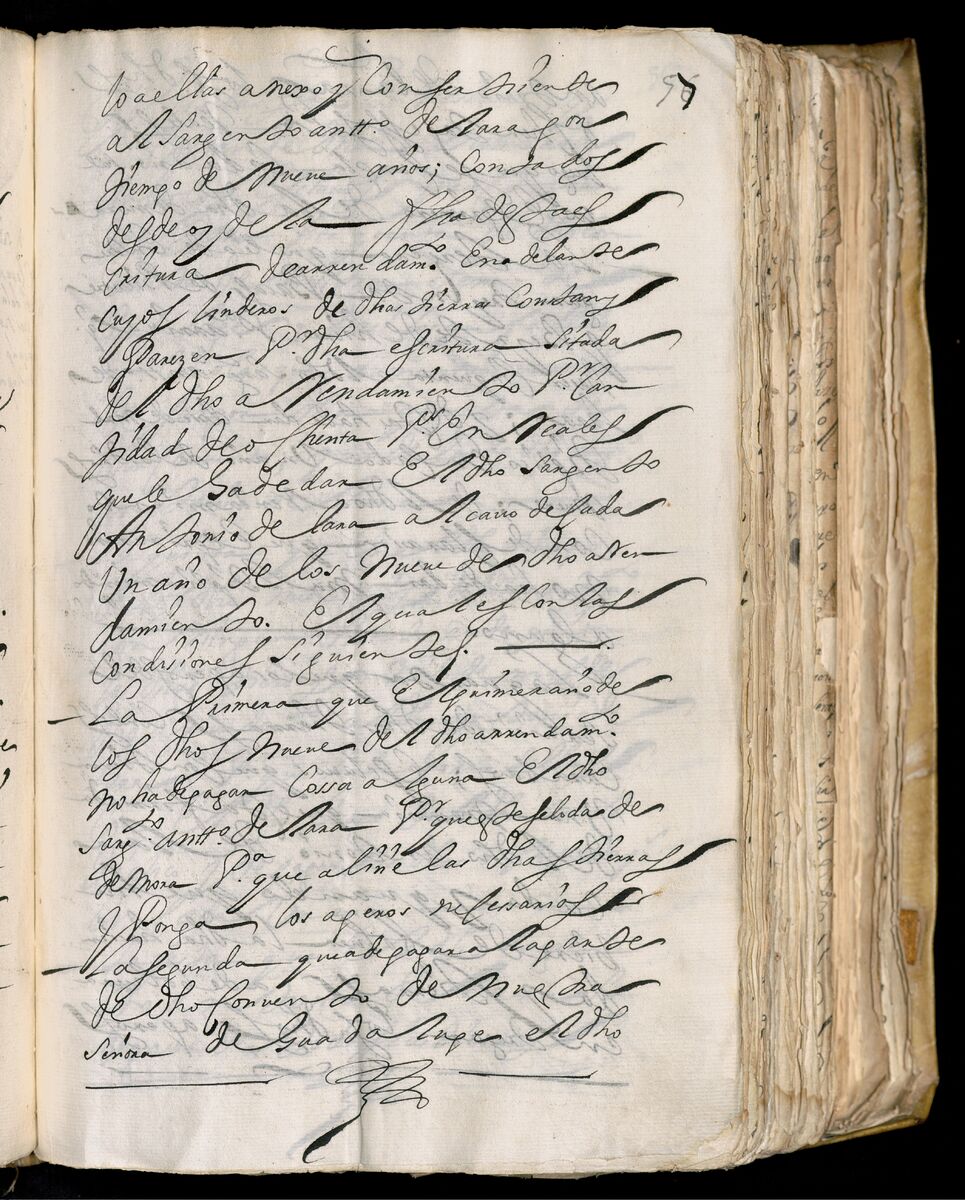 57
lo a ellas anexo y Conserniente
al Sargento antt.º de lara pon
tiempo de Nueve años; Contados
desde oy dela fha desta es
critura dearrendam.to En adelante
cuyos linderos de dhas tierras Constan y
Parezen P.r dha escritura sitada
del dho aRendamiento P.r Can
tidad de ochenta P.s En Reales
quele ha de dar El dho Sargento
Antonio de lara al cavo de Cada
Un año de los Nueve de dho aRen
damiento. El qual es Con las
Condisiones siguientes.
La Primera que El primer año de
los dhos Nueve del dho arrendam.to
no hadepagar Cossa alguna El dho
Sarg.to antt.º de lara P.r que este sele da de
demora P.a que aliñe las dhas tierras
y Ponga los aperos nesessarios
La segunda que a de pagar a la parte
de dho Convento de Nuestra
señora de Guadalupe el dho